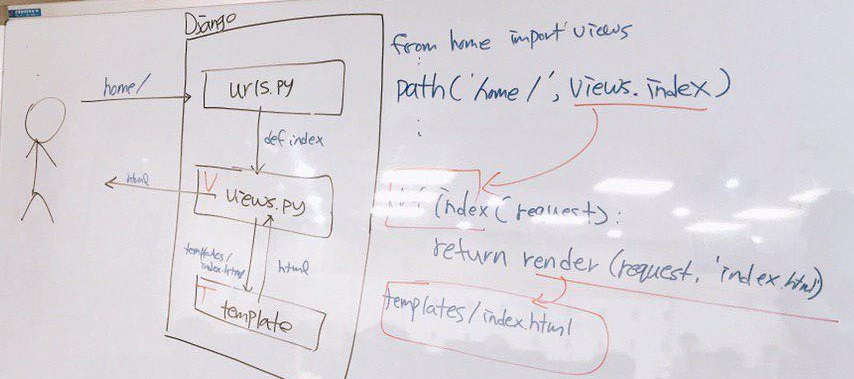 Django
home/
urls.py
def index
html
V
views.py
templates/
index.html
html
T
template
from home import views
path('home/', views.index)
index(request):
return render(request, 'index.html)
templates/index.html